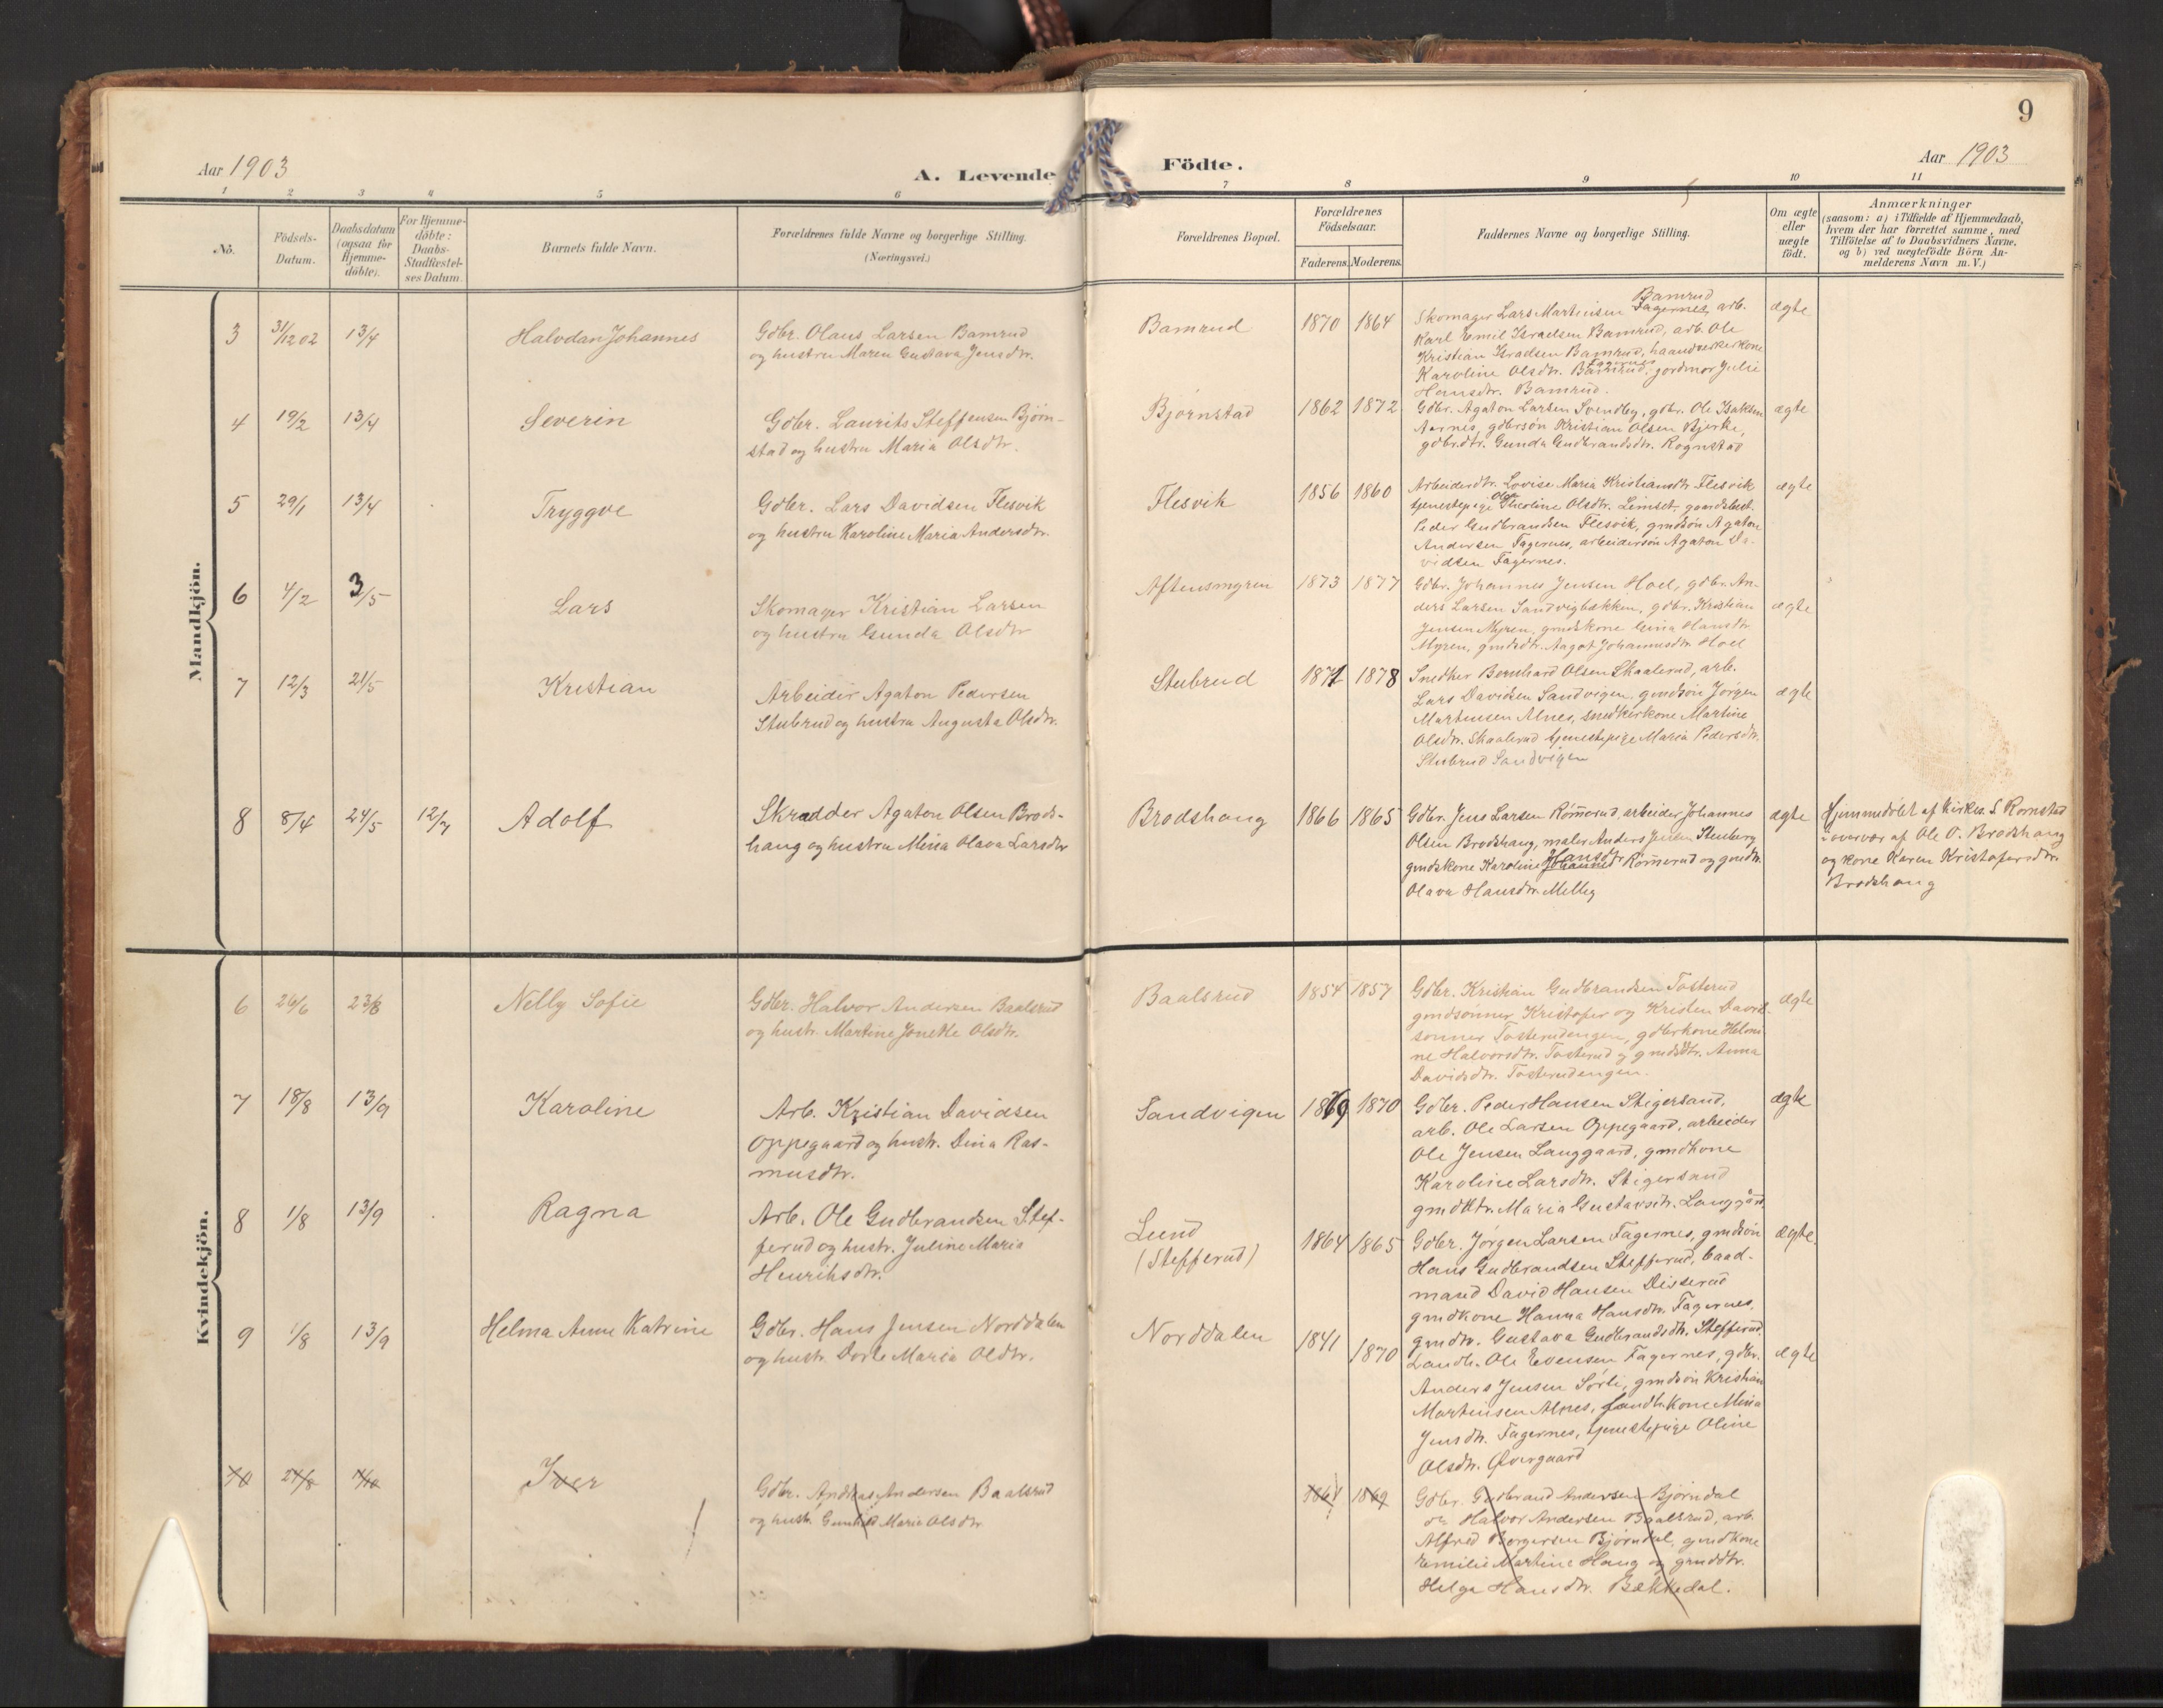 9
Aar 1903
A. Levende Födte.
Aar 1903
1 2 3 4 5 6 7 8 9 10 11
No.
Födsels-
Datum.
Daabsdatum
(ogsaa för
Hjemme-
döbte).
For Hjemme-
döbte:
Daabs-
Stadfæstel-
ses Datum.
Barnets fulde Navn.
Forældrenes fulde Navne og borgerlige Stilling.
(Næringsvei.)
Forældrenes Bopæl.
Forældrenes
Födselsaar.
Faderens. Moderens.
Faddernes Navne og borgerlige Stilling.
Om ægte
eller
uægte
födt.
Anmærkninger
(saasom: a) i Tilfælde af Hjemmedaab,
hvem der har forrettet samme, med
Tilföielse af to Daabsvidners Navne,
og b) ved uægtefödte Börn An-
melderens Navn m. V.)
Mandkjön.
3 31/12 02 13/4 Halvdan Johannes
Gdbr. Olaus Larsen Bamrud
og hustru Maren Gustava Jensdtr.
Bamrud 1870 1864
Bamrud
Skomager Lars Martinsen Fagernes, arb.
Karl Emil Israelsen Bamrud, arb. Ole
Kristian Israelsen Bamrud, haandverkerkone
Fagernes
Karoline Olsdtr. Bamrud, gordmor Julie
Hansdtr. Bamrud.
ægte
4 19/2 13/4 Severin
Gdbr. Laurits Steffensen Bjørn-
stad og hustru Maria Olsdtr.
Bjørnstad 1862 1872
Gdbr. Agaton Larsen Svendby, gdbr. Ole Isaksen
Aarnes, gdbrsön Kristian Olsen Bjerke,
gdbr.dtr. Gunda Gudbrandsdtr. Rognstad
ægte
5 29/1 13/4 Tryggve
Gdbr. Lars Davidsen Flesvik
og hustru Karoline Maria Andersdtr.
Flesvik 1856 1860
Arbeiderdtr. Lovise Maria Kristiansdtr. Flesvik
tjenestepige Olsdtr. Limset, gaardsbest.
Peder Gudbrandsen Flesvik, gmdsön Agaton
Andersen Fagernes, arbeidersön Agaton Da-
vidsen Fagernes.
ægte
6 4/2 3/5 Lars
Skomager Kristian Larsen
og hustru Gunda Olsdtr
Aftensmyren 1873 1877
Gdbr. Johannes Jensen Hoel, gdbr. An-
ders Larsen Sandvigbækken, gdbr. Kristian
Jensen Myren, gmdskone Gina Hansdtr
Myren, gmdsdtr. Aagot Johannesdtr. Hoel
ægte
7 12/3 21/5 Kristian
Arbeider Agaton Pedersen
Stubrud og hustru Augusta Olsdtr.
Stubrud 1871 1878
Snedker Bernhard Olsen Skaalerud, arb.
Lars Davidsen Sandvigen, gmdsön Jørgen
Martinsen Alnes, snedkerkone Martine
Olsdtr. Skaalerud tjenestepige Maria Pedersdtr.
Stubrud Sandvigen
ægte
8 8/4 24/5 12/7 Adolf
Skrædder Agaton Olsen Brods-
haug og hustru Mina Olava Larsdtr
Brodshaug 1866 1865
Gdbr. Jens Larsen Rømerud, arbeider Johannes
Olsen Brodshaug, maler Anders Jensen Stenberg
Hansdtr
gmdskone Karoline Johannes Rømerud og gmdtr.
Olava Hansdtr. Melby
ægte
Hjemmedöbt af Kirkes. S. Rornstad
i overvær af Ole O. Brodshaug
og kone Karen Kristofersdtr.
Brodshaug
Kvindekjön.
6 26/6 23/8 Nelly Sofie
Gdbr. Halvor Andersen Baalsrud
og hustr. Martine Jonette Olsdtr.
Baalsrud 1854 1857
Gdbr. Kristian Gudbrandsen Tosterud
gmdsønner Kristofer og Kristen David-
sønner Tosterudengen, gdbrkone Heleni-
ne Halvorsdtr. Tosterud og gmdsdtr. Anna
Davidsdtr. Tosterudengen.
ægte
7 18/8 13/9 Karoline
Arb. Kristian Davidsen
Oppegaard og hustr. Dina Ras-
musdtr.
Sandvigen 1869 1870
Gdbr. Peder Hansen Stigersand,
arb. Ole Larsen Oppegaard, arbeider
Ole Jensen Langgaard, gmdkone
Karoline Larsdtr. Stigersand
gmddtr. Maria Gustavsdtr. Langgård
ægte
8 1/8 13/9 Ragna
Arb. Ole Gudbrandsen Stef-
ferud og hustr. Juline Maria
Henriksdtr.
Lund
(Stefferud)
1864 1865
Gdbr. Jørgen Larsen Fagernes, gmdsön
Hans Gudbrandsen Stefferud, baad-
mand David Hansen Disserud
gmdkone Hanna Hansdtr. Fagernes,
gmdtr. Gustava Gudbrandsdtr. Stefferud.
ægte
9 1/8 13/9 Helma Anne Katrine
Gdbr. Hans Jensen Norddalen
og hustr. Dorte Maria Oldtr.
Norddalen 1841 1870
Landh. Ole Evensen Fagernes, gdbr.
Anders Jensen Sørli, gmdsön Kristian
Martinsen Alnes, landh.kone Mina
Jensdtr. Fagernes, tjenestepige Oline
Olsdtr. Øvergaard
ægte
10 27/8 Iver
Gdbr. Andreas Andersen Baalsrud
og hustr. Gunhild Marie Olsdtr
1868 1869
Gdbr. Gudbrand Andersen Bjørndal
og Halvor Andersen Baalsrud, arb.
Alfred Borgersen Bjørndal, gmdkone
Emilie Martine Haug og gmddtr.
Helga Hansdtr. Bækkedal.